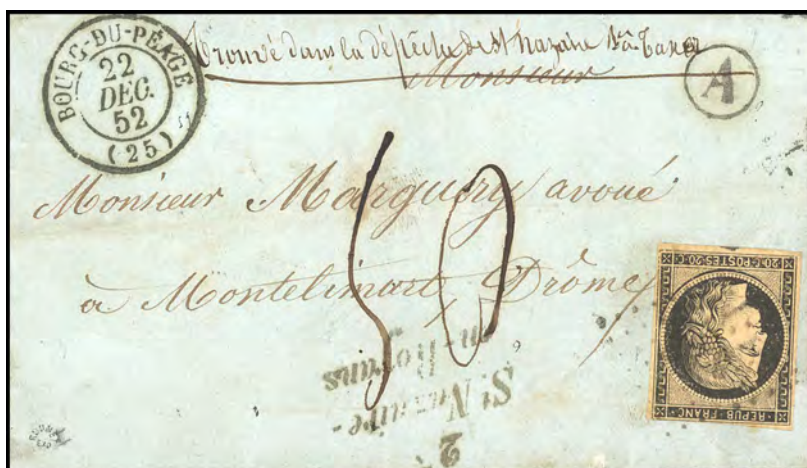 BOURG-DU-PÉAGE
22
DEC.
52
(25)
Trouvé dans la dépêche de St Nazaire à Taxer
Monsieur
A
Monsieur Marguery avoué
à Montelimart Drôme
50
20.C.POSTES.20.C
REPUB.FRANC
2
St Nazaire-